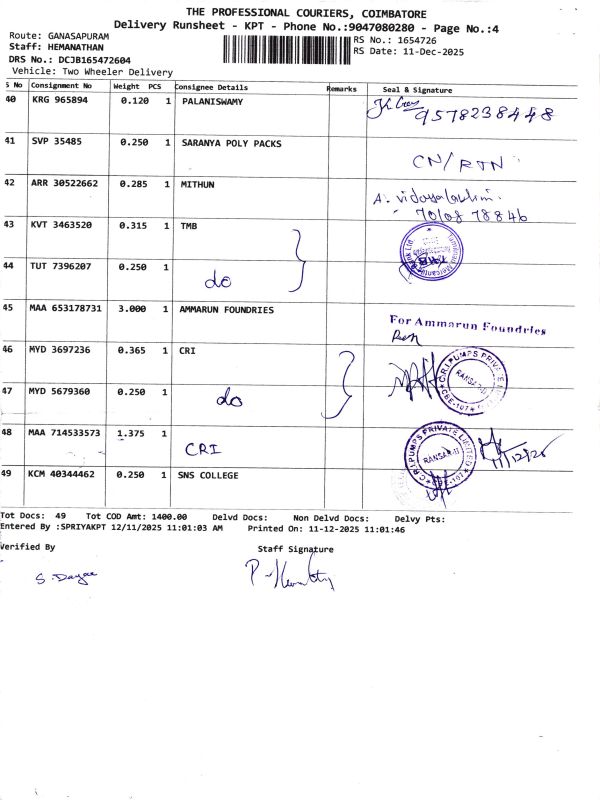 THE PROFESSIONAL COURIERS, COIMBATORE
Delivery Runsheet - KPT - Phone No.:9047080280 - Page No.:4
Route: GANASAPURAM
RS No.: 1654726
Staff: HEMANATHAN
RS Date: 11-Dec-2025
DRS No.: DCJB165472604
Vehicle: Two Wheeler Delivery
S No Consignment No Weight PCS Consignee Details Remarks Seal & Signature
40 KRG 965894 0.120 1 PALANISWAMY
9578238448
41 SVP 35485 0.250 1 SARANYA POLY PACKS
CN/RTN
42 ARR 30522662 0.285 1 MITHUN
A. Vidayalakshmi
70108 78846
43 KVT 3463520 0.315 1 TMB
44 TUT 7396207 0.250 1
do
45 MAA 653178731 3.000 1 AMMARUN FOUNDRIES
For Ammarun Foundries
46 MYD 3697236 0.365 1 CRI
C.R.I. PUMPS PRIVATE
47 MYD 5679360 0.250 1
do
48 MAA 714533573 1.375 1
CRI
C.R.I. PUMPS PRIVATE LIMITED
11/12/25
49 KCM 40344462 0.250 1 SNS COLLEGE
Tot Docs: 49 Tot COD Amt: 1400.00 Delvd Docs: Non Delvd Docs: Delvy Pts:
Entered By :SPRIYAKPT 12/11/2025 11:01:03 AM Printed On: 11-12-2025 11:01:46
Verified By Staff Signature